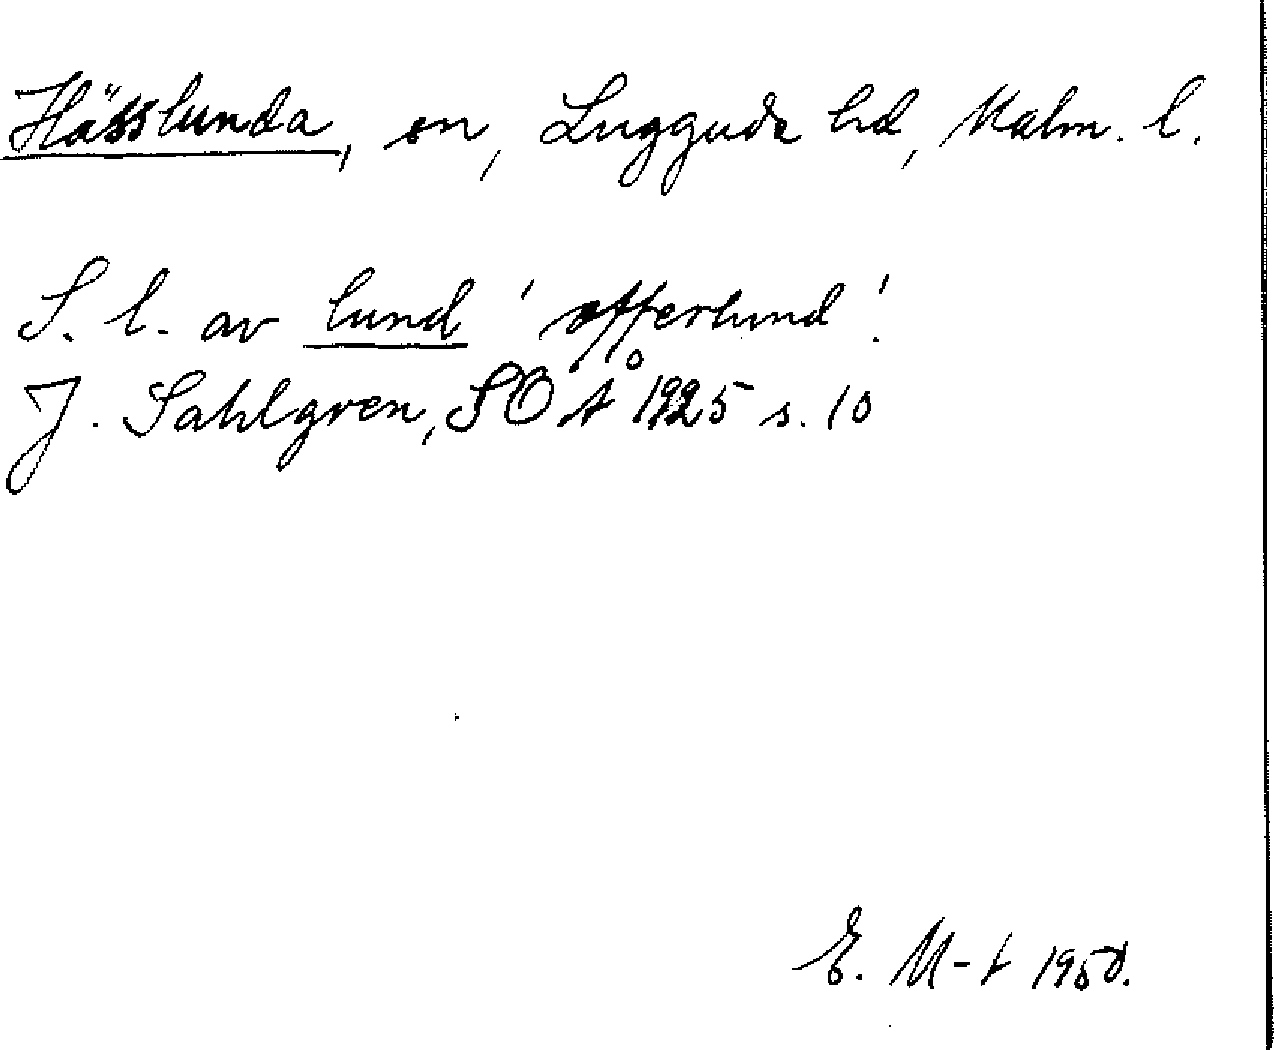 Hässlunda, sn, Luggude hd, Malm. l.
S. l. av lund 'offerlund'.
J. Sahlgren, SOÅ 1925 s. 10
E. M-t 1950.